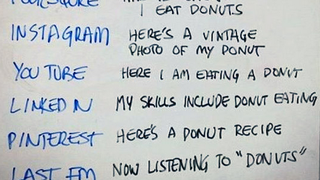 I EAT DONUTS
INSTAGRAM HERE'S A VINTAGE
PHOTO OF MY DONUT
YOU TUBE HERE I AM EATING A DONUT
LINKED IN MY SKILLS INCLUDE DONUT EATING
PINTEREST HERE'S A DONUT RECIPE
LAST FM NOW LISTENING TO "DONUTS"